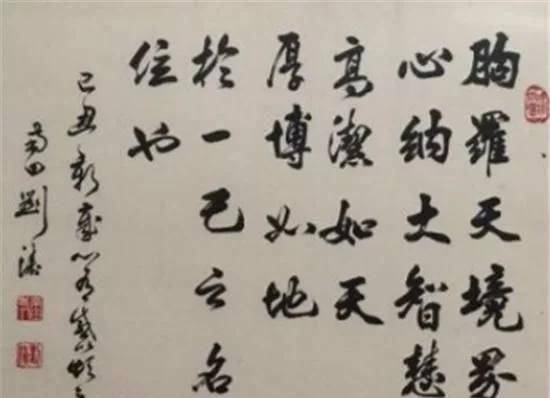 胸羅天境界
心納大智慧
高潔如天
厚博如地
於一己之名
位也
己丑新歲
田劉